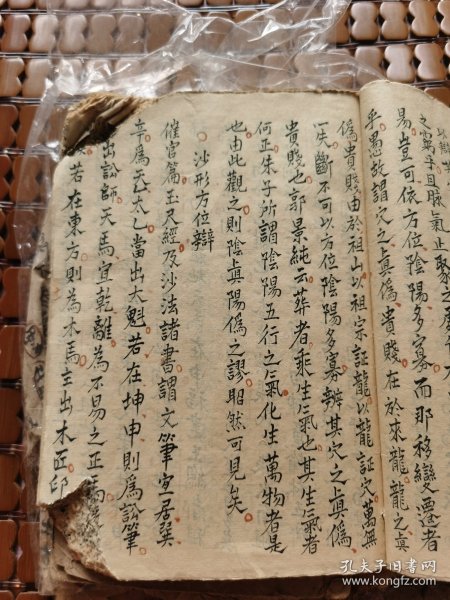 之
易豈可依方位陰陽多寡而那移變遷者
乎愚故謂穴之真偽貴賤在於來龍龍之真
偽貴賤由於祖山以祖宗証龍以龍証穴萬無
一失斷不可以方位陰陽多寡辨其穴之真偽
貴賤也郭景純云葬者乘生氣也其生氣者
何正朱子所謂陰陽五行之氣化生萬物者是
也由此觀之則陰真陽偽之謬昭然可見矣
沙形方位辯
催官篇玉尺經及沙法諸書謂文筆宜居巽
辛為天乙太乙當出大魁若在坤申則為訟筆
出訟師天馬宜乾離為不易之正馬
若在東方則為木馬主出木匠卯
孔夫子旧书网
www.kongfz.com